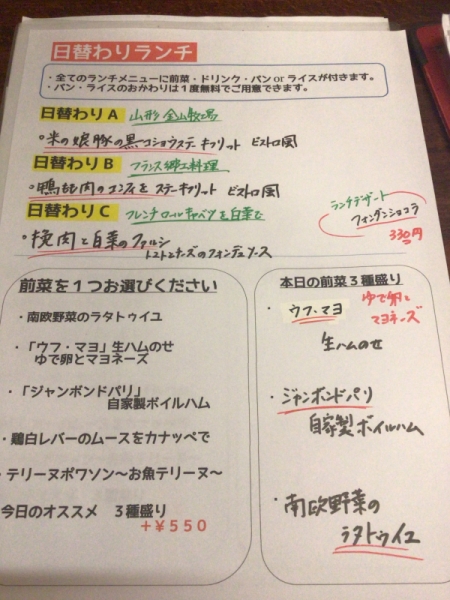 日替わりランチ
・全てのランチメニューに前菜・ドリンク・パン or ライスが付きます。
・パン・ライスのおかわりは１度無料でご用意できます。
日替わりA 山形 金山牧場
・米の娘豚の黒コショウステーキフリット ビストロ風
日替わりB フランス郷土料理
・鴨もも肉のコンフィを ステーキフリット ビストロ風
日替わりC フレンチロールキャベツを白菜で
・挽肉と白菜のファルシ
トマトとチーズのフォンデュソース
ランチデザート
フォンダンショコラ
330円
前菜を１つお選びください
・南欧野菜のラタトゥイユ
・「ウフ・マヨ」生ハムのせ
ゆで卵とマヨネーズ
・「ジャンボンドパリ」
自家製ボイルハム
・鶏白レバーのムースをカナッペで
・テリーヌポワソン～お魚テリーヌ～
今日のオススメ ３種盛り
＋￥５５０
本日の前菜３種盛り
・ウフ・マヨ ゆで卵と
マヨネーズ
生ハムのせ
・ジャンボンドパリ
自家製ボイルハム
・南欧野菜の
ラタトゥイユ